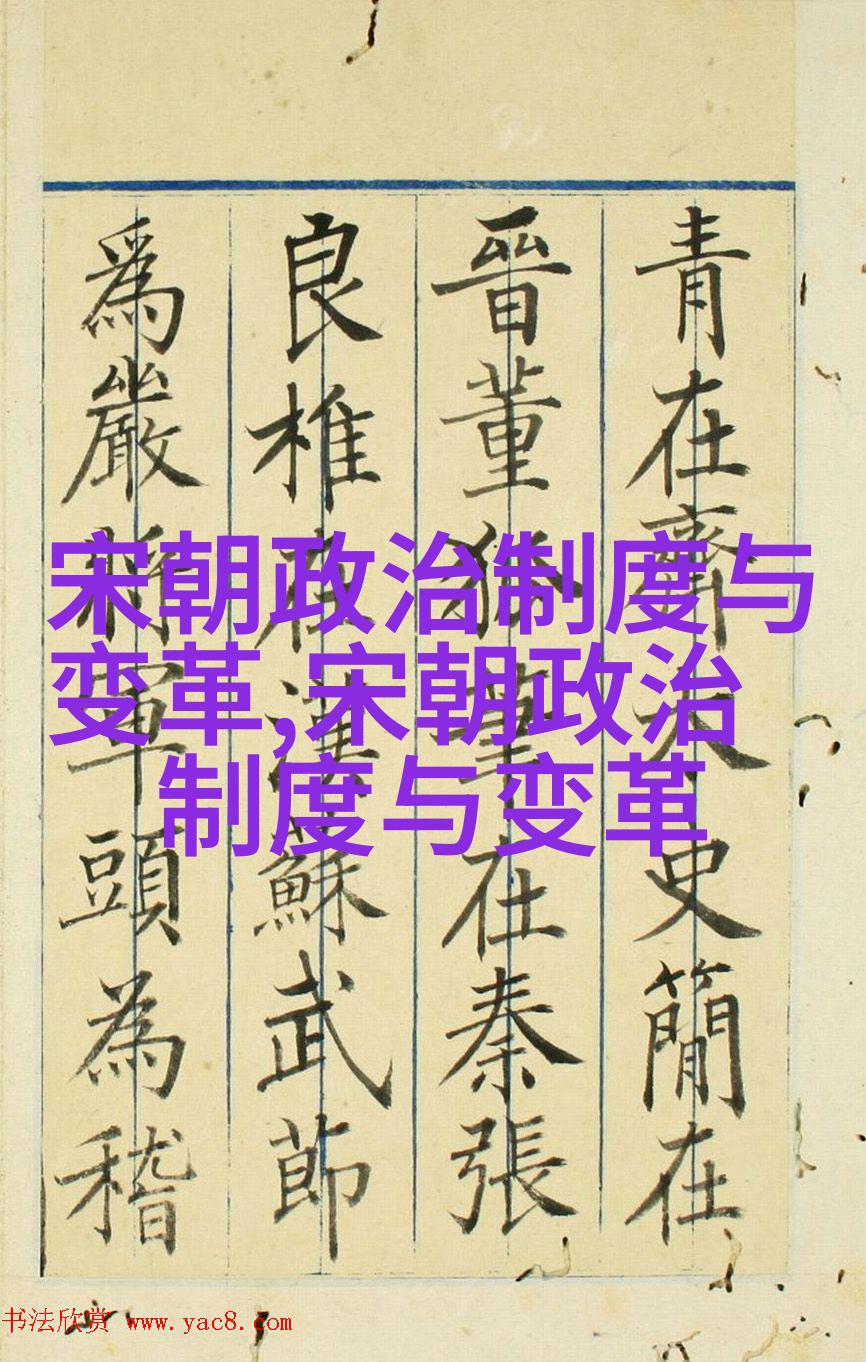 宋朝政治制度与
变革,宋朝政治
制度与变革
青在齊太史簡在
晉董狐筆在秦張
良椎在漢蘇武節
爲嚴將軍頭為稽
书法欣赏 www.yac8.com